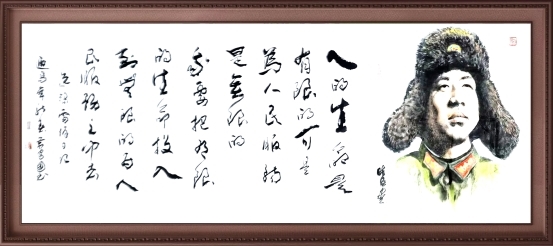 人的生命是
有限的可是
為人民服務
是無限的
我要把有限
的生命投入
到無限的為人
民服務之中去
雷锋日记